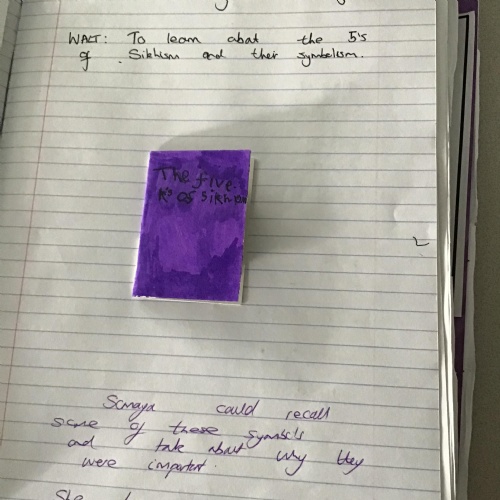 WALT: To learn abat the 5's
of Sikhism and their symbolism.
The five
K's of Sikhism
Somaya could recall
some of these symbols
and take about why they
were important.
She